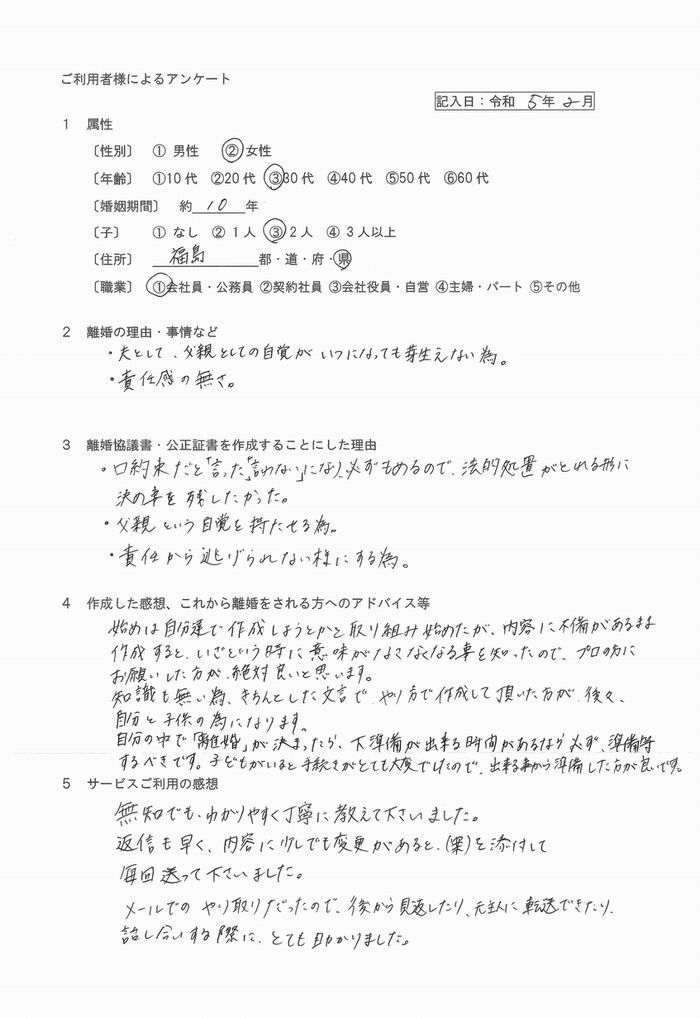 ご利用者様によるアンケート
記入日：令和 5年 2月
1 属性
〔性別〕 ① 男性 ② 女性
〔年齢〕 ①10代 ②20代 ③30代 ④40代 ⑤50代 ⑥60代
〔婚姻期間〕 約 10 年
〔子〕 ① なし ② 1人 ③ 2人 ④ 3人以上
〔住所〕 福島 都・道・府・県
〔職業〕 ①会社員・公務員 ②契約社員 ③会社役員・自営 ④主婦・パート ⑤その他
2 離婚の理由・事情など
・夫として、父親としての自覚がいつになっても芽生えない為。
・責任感の無さ。
3 離婚協議書・公正証書を作成することにした理由
・口約束だと「言った」「言わない」になり、必ずもめるので、法的処置がとれる形に
決め事を残したかった。
・父親という自覚を持たせる為。
・責任から逃げられない様にする為。
4 作成した感想、これから離婚をされる方へのアドバイス等
始めは自分達で作成しようとかと取り組み始めたが、内容に不備があるまま
作成すると、いざという時に意味がなくなる事を知ったので、プロの方に
お願いした方が、絶対良いと思います。
知識も無い為、きちんとした文言で、やり方で作成して頂いた方が、後々、
自分と子供の為になります。
自分の中で「離婚」が決まったら、下準備が出来る時間があるなら必ず、準備等
するべきです。子どもがいると手続きがとても大変でしたので、出来る事から準備した方が良いです。
5 サービスご利用の感想
無知でも、わかりやすく丁寧に教えて下さいました。
返信も早く、内容に少しでも変更があると、(案)を添付して
毎回送って下さいました。
メールでのやり取りだったので、後から見返したり、元主人に転送できたり、
話し合いする際に、とても助かりました。